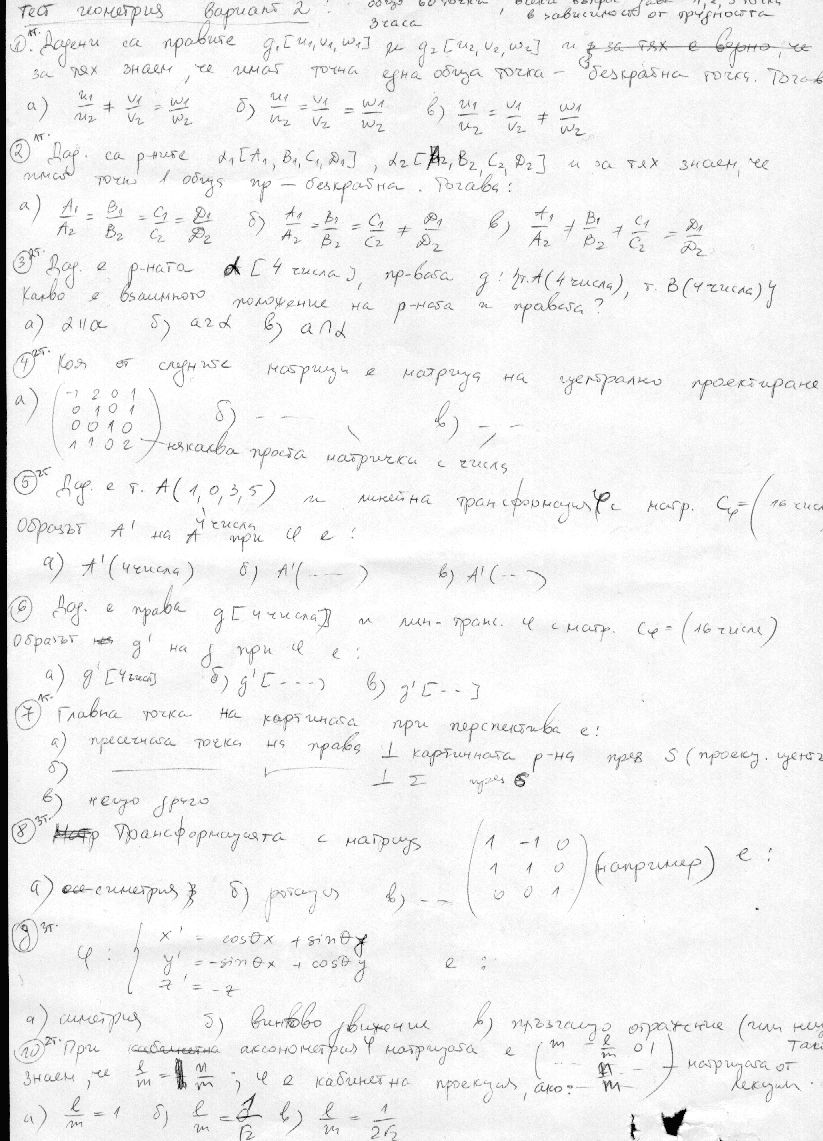 Тест геометрия Вариант 2 : общо 60 точки
3 часа в зависимост от трудността
① 1т. Дадени са правите g₁[u₁,v₁,w₁] и g₂[u₂,v₂,w₂] и
за тях знаем, че имат точна една обща точка – безкрайна точка. Тогава
а) u₁/u₂ ≠ v₁/v₂ = w₁/w₂ б) u₁/u₂ = v₁/v₂ = w₁/w₂ в) u₁/u₂ = v₁/v₂ ≠ w₁/w₂
② 1т. Дад. са р-ните α₁[A₁, B₁, C₁, D₁] , α₂[A₂, B₂, C₂, D₂] и за тях знаем, че
имат точно 1 обща пр – безкрайна . Тогава :
а) A₁/A₂ = B₁/B₂ = C₁/C₂ = D₁/D₂ б) A₁/A₂ = B₁/B₂ = C₁/C₂ ≠ D₁/D₂ в) A₁/A₂ ≠ B₁/B₂ ≠ C₁/C₂ = D₁/D₂
③ 2т. Дад. е р-ната α [4 числа], пр-вата g : {т.A(4 числа), т. B(4 числа)}
Какво е взаимното положение на р-ната и правата?
а) α || a б) a z α в) a ∩ α
④ 2т. Коя от следните матрици е матрица на централно проектиране
а) ( -1 2 0 1 б) – – в) – –
0 1 0 1
0 0 1 0
1 1 0 2 ) – някаква проста матричка с числа
⑤ 2т Дад. е т. A(1, 0, 3, 5) и линейна трансформация φ с матр. Cφ = ( 16 числа
4 числа
Образът A' на A при φ е :
а) A'(4 числа) б) A'(- - - ) в) A'(- - )
⑥ Дад. е права g[4 числа] и лин-транс. φ с матр. Cφ = (16 числа)
Образът g' на g при φ е :
а) g'[4 числ] б) g'[- - -) в) g'[- -]
⑦ 1т. Главна точка на картината при перспектива е :
а) пресечната точка на права ⊥ картинната р-на през S (проекц. центъ
б) ——— ——— ⊥ Σ през S
в) нещо друго
⑧ 3т. Трансформацията с матрица ( 1 -1 0
1 1 0
0 0 1 ) (например) е :
а) симетрия б) ротация в) – –
⑨ 3т. φ : { x' = cosθx + sinθy
y' = -sinθx + cosθy е :
z' = -z
а) симетрия б) винтово движение в) плъзгащо отражение (или нещ
так
⑩ 2т. При аксонометрия φ матрицата е ( m = ℓ/m 0 1
... n/m ) – матрицата от
знаем, че ℓ/m = n/m ; φ е кабинетна проекция, ако : лекции .
а) ℓ/m = 1 б) ℓ/m = 1/√2 в) ℓ/m = 1/2√2